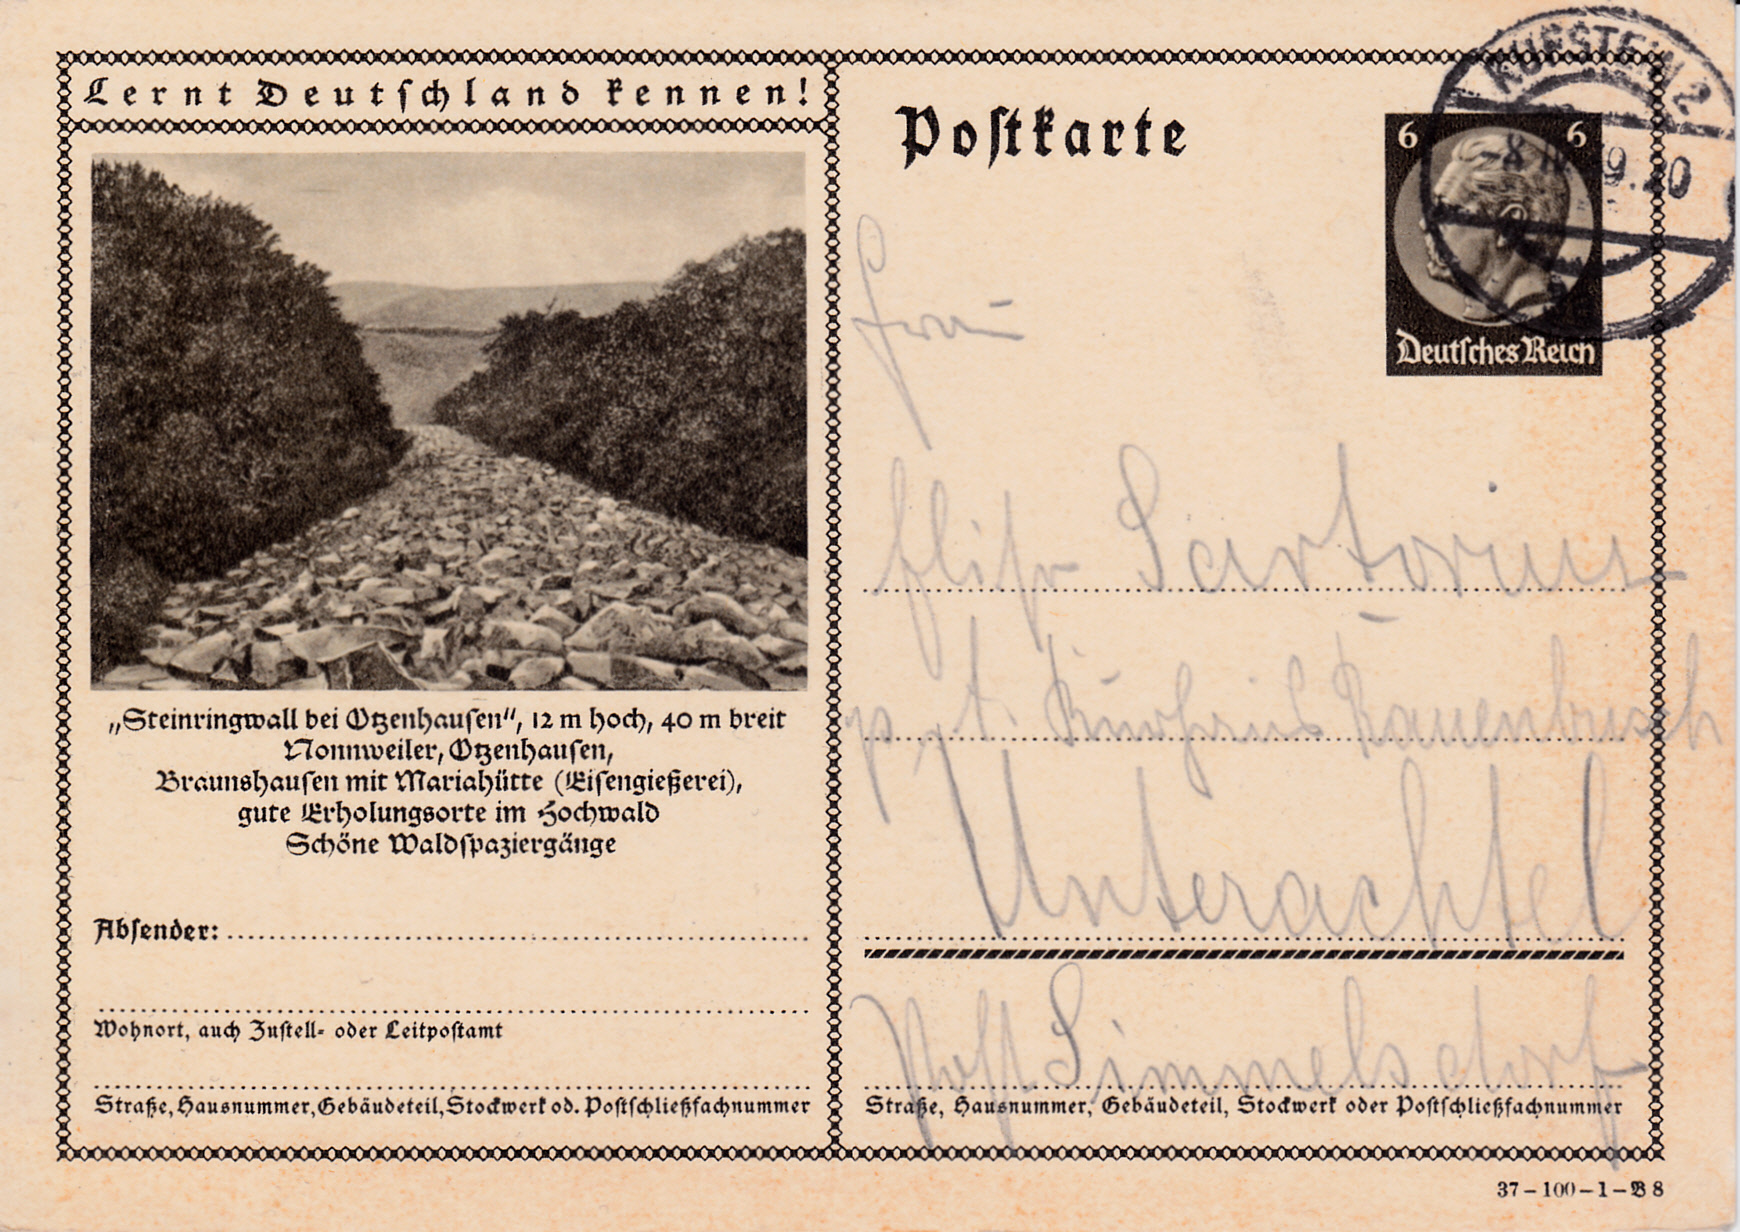 Lernt Deutschland kennen!
„Steinringwall bei Otzenhausen", 12 m hoch, 40 m breit
Nonnweiler, Otzenhausen,
Braunshausen mit Mariahütte (Eisengießerei),
gute Erholungsorte im Hochwald
Schöne Waldspaziergänge
Absender:
Wohnort, auch Zustell- oder Leitpostamt
Straße, Hausnummer, Gebäudeteil, Stockwerk od. Postschließfachnummer
Postkarte
KUFSTEIN 2
6 6
Deutsches Reich
Frau
Elise Sartorius
Rauenbusch
Unterachtel
Post Simmelsdorf
Straße, Hausnummer, Gebäudeteil, Stockwerk oder Postschließfachnummer
37-100-1-B 8